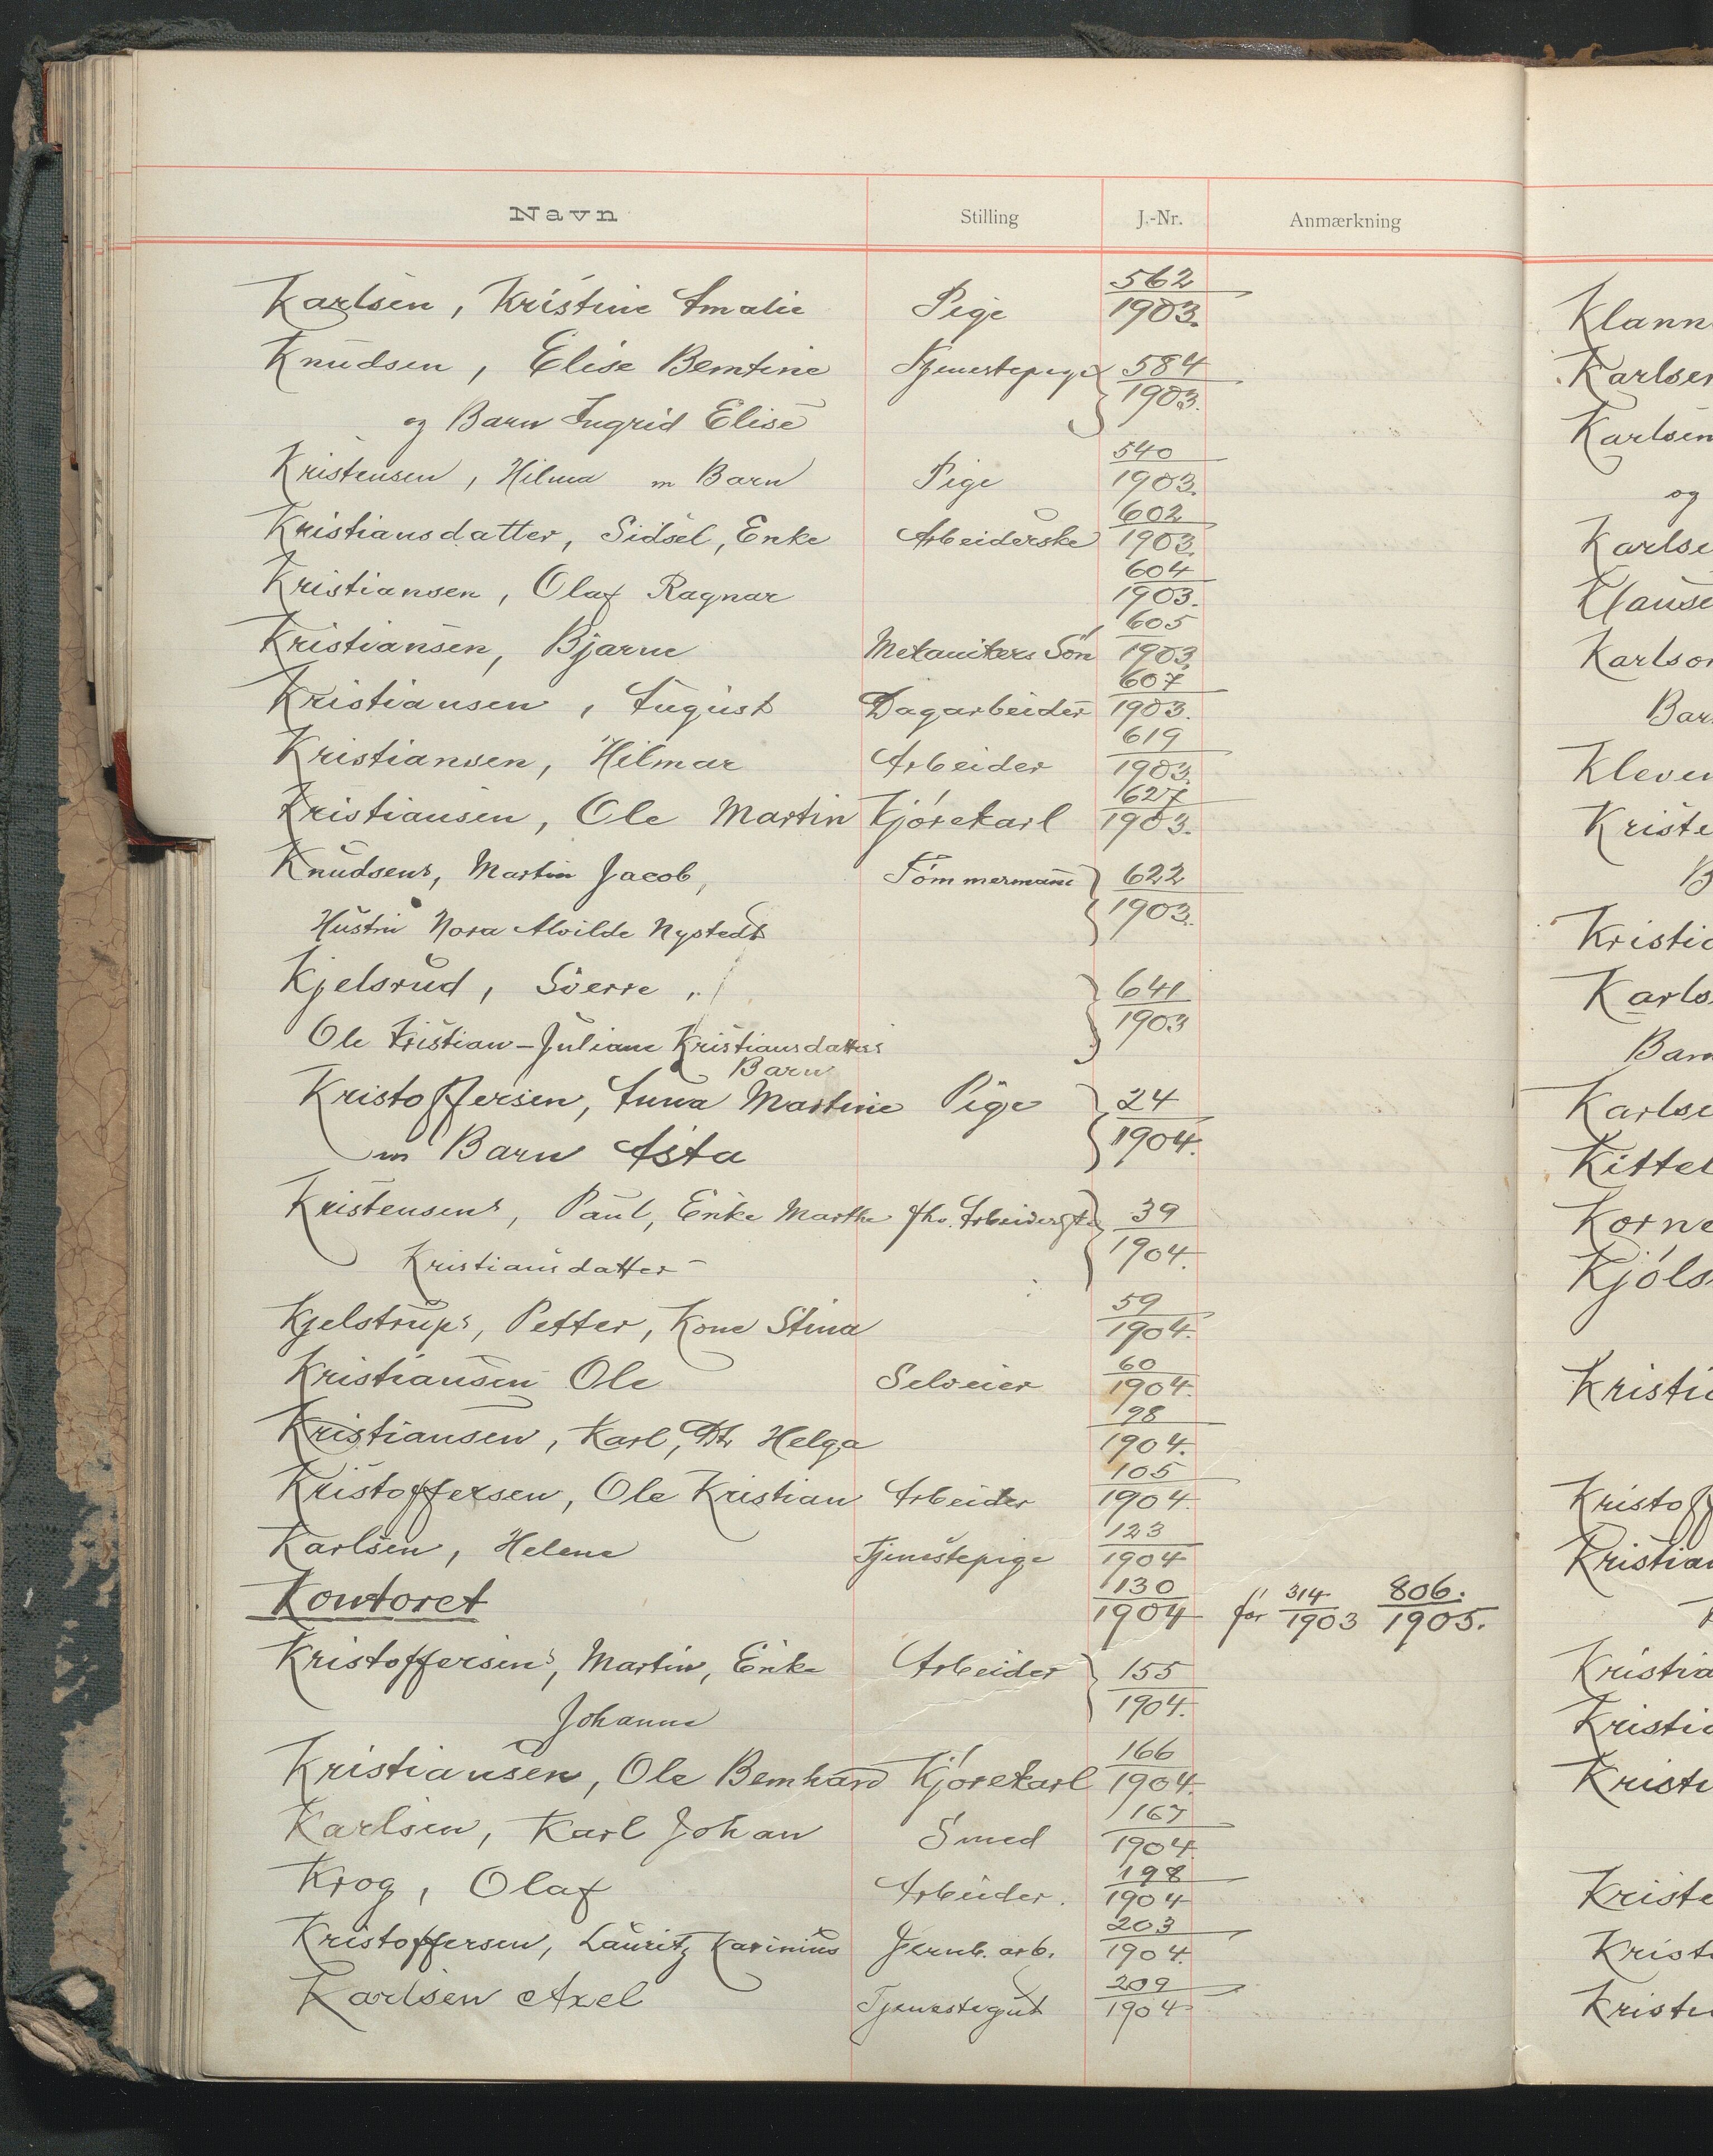 Navn Stilling J.-Nr. Anmærkning
Karlsen, Kristine Amalie Pige 562/1903.
Knudsen, Elise Berntine Tjenestepige 584/1903.
og Barn Ingrid Elise
Kristensen, Hilma m Barn Pige 540/1903.
Kristiansdatter, Sidsel, Enke Arbeiderske 602/1903.
Kristiansen, Olaf Ragnar 604/1903.
Kristiansen, Bjarne Mekanikers Sön 605/1903.
Kristiansen, August Dagarbeider 607/1903.
Kristiansen, Hilmar Arbeider 619/1903.
Kristiansen, Ole Martin Kjörekarl 627/1903.
Knudsens, Martin Jacob, Tömmermann 622/1903.
Hustru Nora Alvilde Nystedt
Kjelsrud, Sverre, 641/1903
Ole Kristian - Juliane Kristiansdatters
Barn
Kristoffersen, Anna Martine Pige 24/1904.
m Barn Asta
Kristensens, Paul, Enke Marthe fhv. 39/1904.
Kristiansdatter
Kjelstrups, Petter, Kone Stina 59/1904.
Kristiansen Ole Selveier 60/1904.
Kristiansen, Karl, Dtr Helga 98/1904.
Kristoffersen, Ole Kristian Arbeider 105/1904.
Karlsen, Helene Tjenestepige 123/1904
Kontoret 130/1904 før 314/1903 806./1905.
Kristoffersens, Martin, Enke Arbeider 155/1904.
Johanne
Kristiansen, Ole Bernhard Kjörekarl 166/1904.
Karlsen, Karl Johan Smed 167/1904.
Krog, Olaf Arbeider. 198/1904
Kristoffersen, Lauritz Karinius Jernb. arb. 203/1904.
Karlsen Axel Tjenestegut 209/1904
Klann
Karlsen
Karlsen
og
Karlse
Klause
Karlson
Bar
Kleven
Kriste
B
Kristia
Karls
Barn
Karlse
Kittel
Korne
Kjöls
Kristia
Kristoff
Kristian
Kristia
Kristia
Kristi
Kriste
Krist
Kriste